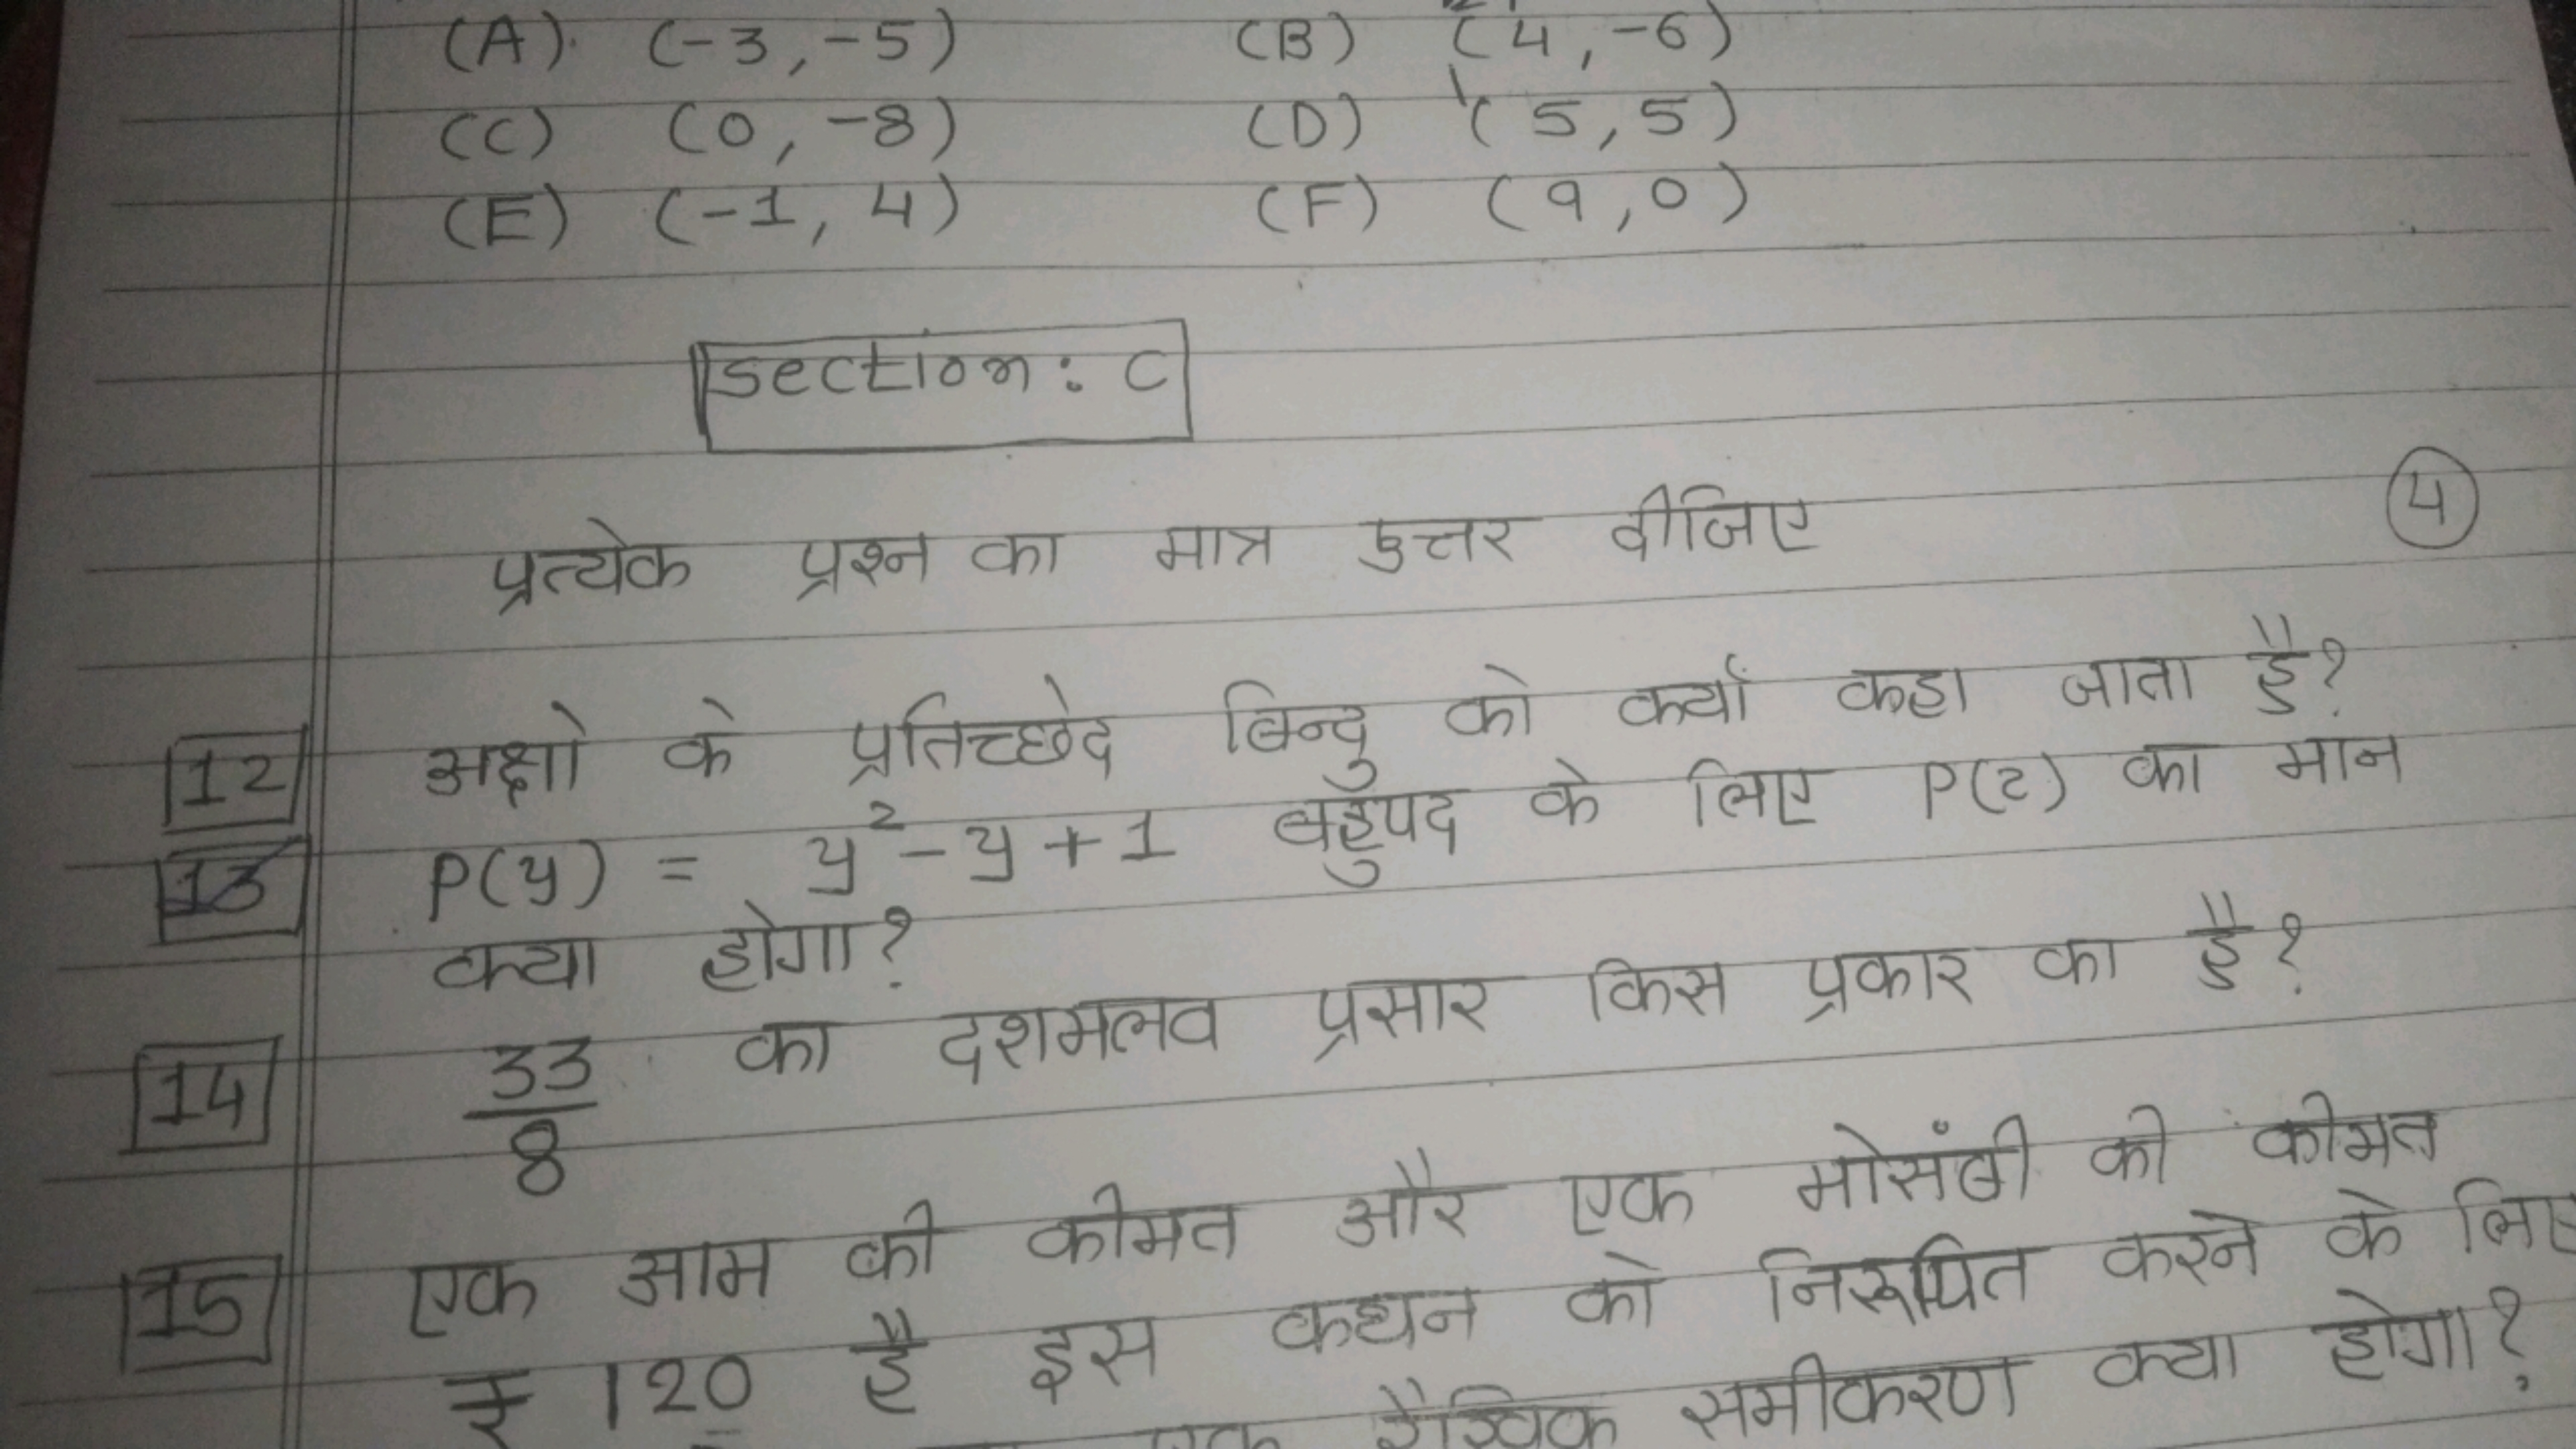 (A) (-3, -5) (B) (4, -6)
(C) (0, -8) (D) (5, 5)
(E) (-1, 4) (F) (9, 0)
Section: C
प्रत्येक प्रश्न का मात्र उत्तर दीजिए 4
12 अक्षो के प्रतिच्छेद बिन्दु को क्याँ कहा जाता है?
13 P(y) = y² - y + 1 बहुपद के लिए P(2) का मान
क्या होगा?
14 33/8 का दशमलव प्रसार किस प्रकार का है?
15 एक आम की कीमत और एक मोसंबी की कीमत
₹ 120 है इस कथन को निरूपित करने के लिए
एक रैखिक समीकरण क्या होगा?